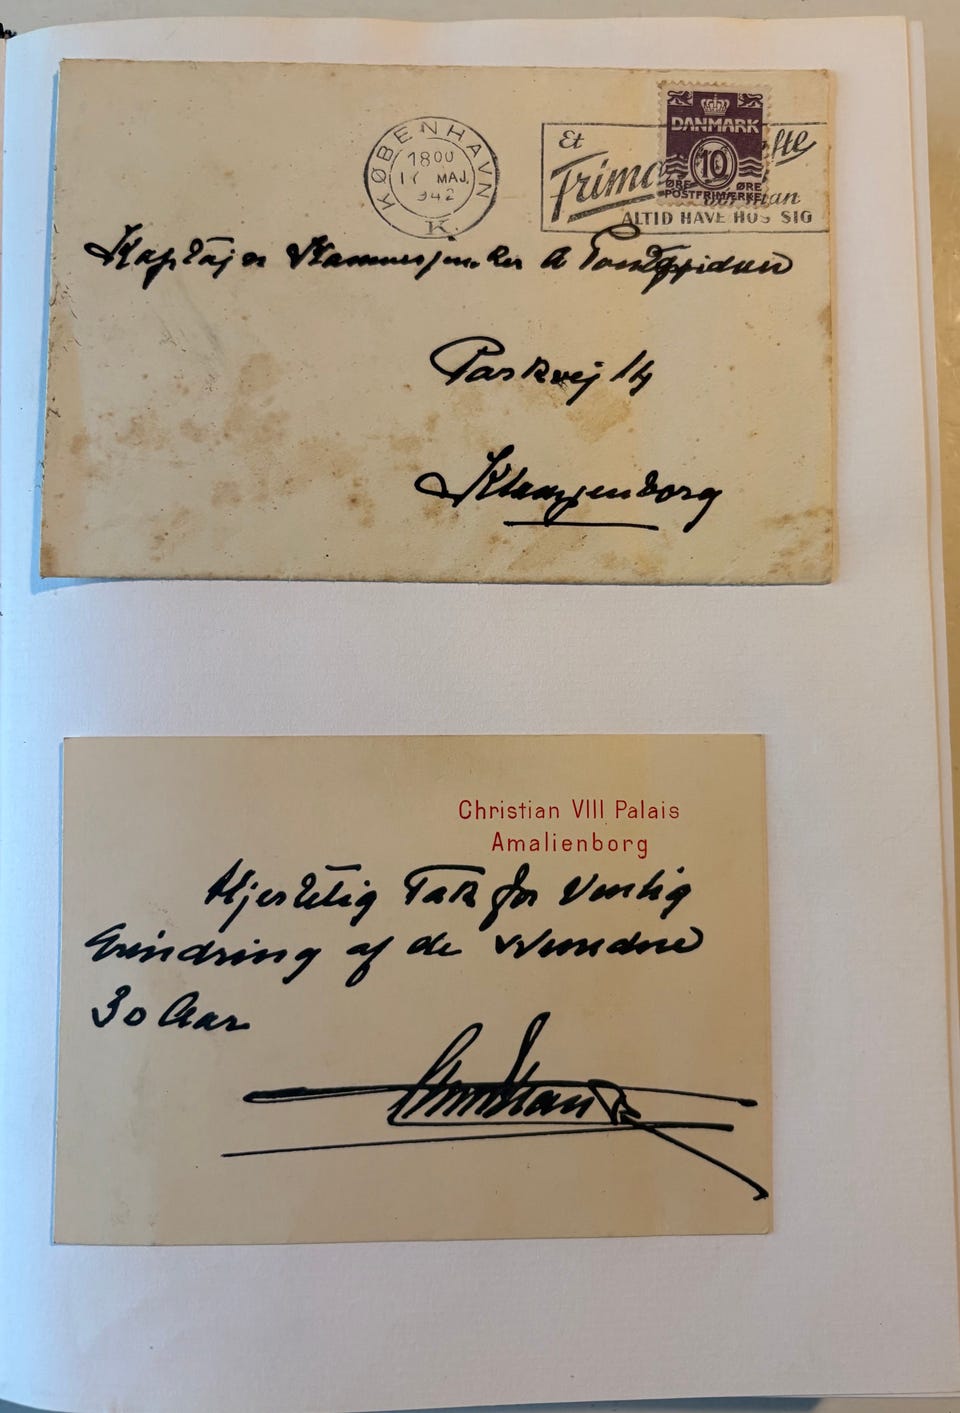 KØBENHAVN
1800
17 MAJ.
942
K.
Et
Frimærkehæfte
bør man
ALTID HAVE HOS SIG
DANMARK
10
ØRE ØRE
POSTFRIMÆRKE
Kaptajn Kammerjunker A Pontoppidan
Parkvej 14
Klampenborg
Christian VIII Palais
Amalienborg
Hjertelig Tak for venlig
Erindring af de svundne
30 Aar
Christian R